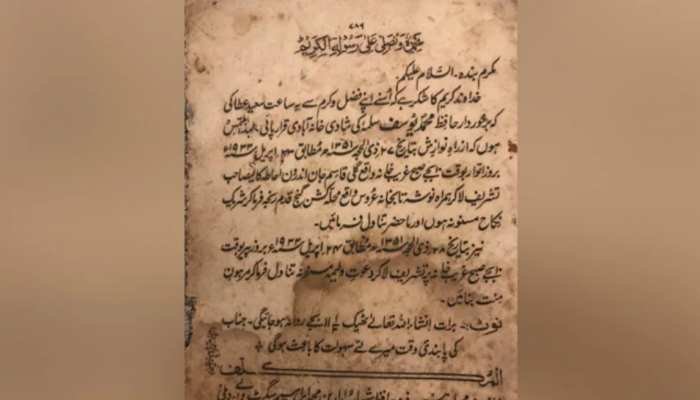 ۷۸۶
نحمدہٗ ونصلی علیٰ رسولہ الکریم
مکرم بندہ۔ السّلام علیکم
خداوند کریم کا شکر ہے کہ اُسنے اپنے فضل وکرم سے یہ ساعت سعید عطا کی
کہ برخوردار حافظ محمد یوسف سلمہٗ کی شادی خانہ آبادی قرار پائی۔
ہوں کہ ازراہ نوازش بتاریخ ۲۷ ذی الحجہ ۱۳۵۱ھ مطابق ۲۳ اپریل ۱۹۳۳ء
بروز اتوار بوقت بجے صبح غریب خانہ واقع گلی قاسم جان اندرون احاطہ کالے صاحب
تشریف لاکر ہمراہ نوشہ تا بخانہ عروس واقع محلہ کشن گنج قدم رنجہ فرماکر شریک
نکاح مسنونہ ہوں اور ماحضر تناول فرمائیں۔
نیز بتاریخ ۲۸ ذی الحجہ ۱۳۵۱ھ مطابق ۲۴ اپریل ۱۹۳۳ء بروز پیر بوقت
۱۰ بجے صبح غریب خانہ پر تشریف لاکر دعوتِ ولیمہ مسنونہ تناول فرماکر مرہون
منت بنائیں۔
نوٹ:۔ برات انشاء اللہ تعالےٰ ٹھیک بجے روانہ ہو جائیگی۔ جناب
کی پابندی وقت میرے لئے سہولت کا باعث ہوگی
المکلف